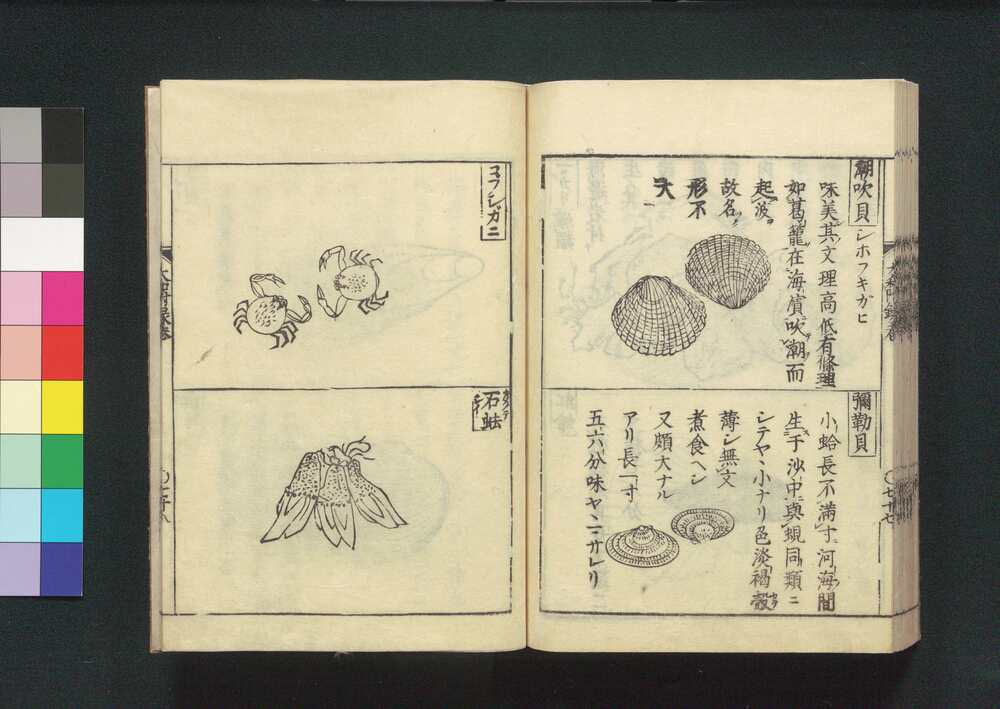 潮吹貝 シホフキガヒ
味美其文理高低有條理
如葛籠在海濱吹潮而
起波ヲ
故名ク
形不
大
彌勒貝
小蛤長不滿寸河海間
生于沙中與蜆同類ニ
シテヤヽ小ナリ色淡褐殼
薄シ無文
煮食ヘシ
又頗大ナル
アリ長一寸
五六分味ヤヽマサレリ
七十七
コブシガニ
石蜐
七十八